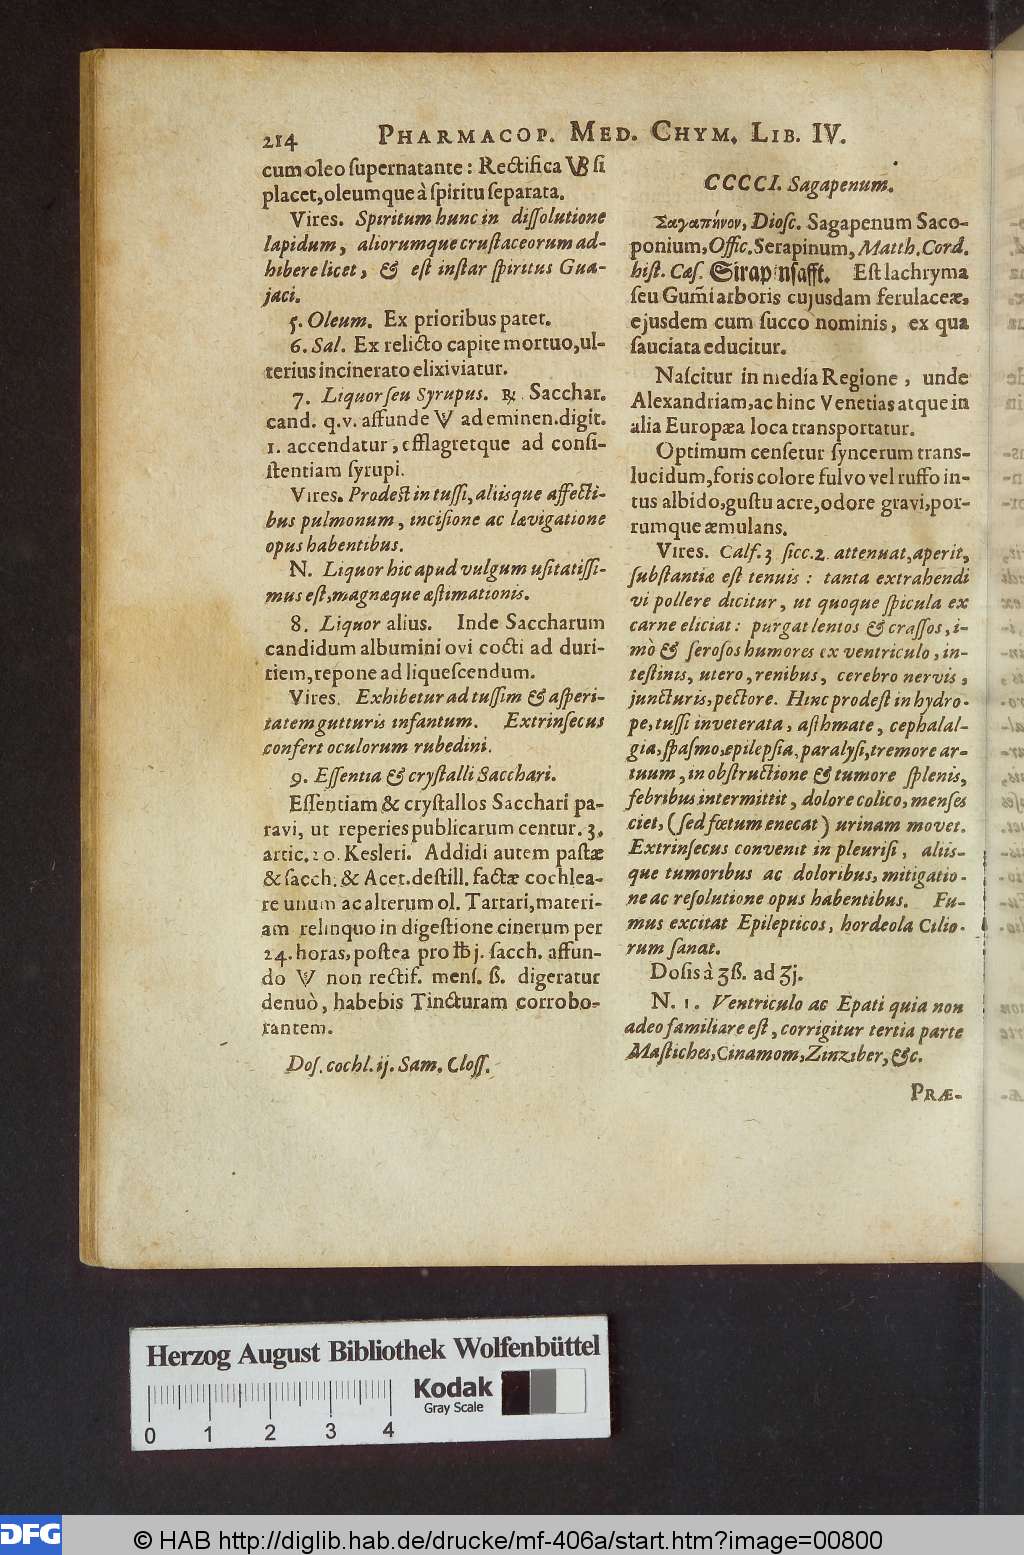 214 PHARMACOP. MED. CHYM. LIB. IV.
cum oleo supernatante: Rectifica si
placet, oleumque à spiritu separata.
Vires. Spiritum hunc in dissolutione
lapidum, aliorumque crustaceorum ad-
hibere licet, & est instar spiritus Gua-
jaci.
5. Oleum. Ex prioribus patet.
6. Sal. Ex relicto capite mortuo, ul-
terius incinerato elixiviatur.
7. Liquor seu Syrupus. ℞. Sacchar.
cand. q.v. affunde ad eminen. digit.
1. accendatur, efflagretque ad consi-
stentiam syrupi.
Vires. Prodest in tussi, aliisque affecti-
bus pulmonum, incisione ac lævigatione
opus habentibus.
N. Liquor hic apud vulgum usitatissi-
mus est, magnæque æstimationis.
8. Liquor alius. Inde Saccharum
candidum albumini ovi cocti ad duri-
tiem, repone ad liquescendum.
Vires. Exhibetur ad tussim & asperi-
tatem gutturis infantum. Extrinsecus
confert oculorum rubedini.
9. Essentia & crystalli Sacchari.
Essentiam & crystallos Sacchari pa-
ravi, ut reperies publicarum centur. 3.
artic. 20. Kesleri. Addidi autem pastæ
& sacch. & Acet. destill. factæ cochlea-
re unum ac alterum ol. Tartari, materi-
am relinquo in digestione cinerum per
24. horas, postea pro ℔ j. sacch. affun-
do non rectif. mens. ß. digeratur
denuò, habebis Tincturam corrobo-
rantem.
Dos. cochl. ij. Sam. Closs.
CCCCI. Sagapenum.
Σαγαπήνον, Diosc. Sagapenum Saco-
ponium, Offic. Serapinum, Matth. Cord.
hist. Cæs. Sirapinsafft. Est lachryma
seu Gum̃i arboris cujusdam ferulaceæ,
ejusdem cum succo nominis, ex qua
sauciata educitur.
Nascitur in media Regione, unde
Alexandriam, ac hinc Venetias atque in
alia Europæa loca transportatur.
Optimum censetur syncerum trans-
lucidum, foris colore fulvo vel ruffo in-
tus albido, gustu acre, odore gravi, por-
rumque æmulans.
Vires. Calf. 3 sicc. 2. attenuat, aperit,
substantiæ est tenuis: tanta extrahendi
vi pollere dicitur, ut quoque spicula ex
carne eliciat: purgat lentos & crassos, i-
mò & serosos humores ex ventriculo, in-
testinis, utero, renibus, cerebro nervis,
juncturis, pectore. Hinc prodest in hydro-
pe, tussi inveterata, asthmate, cephalal-
gia, spasmo, epilepsia, paralysi, tremore ar-
tuum, in obstructione & tumore splenis,
febribus intermittit, dolore colico, menses
ciet, (sed fœtum enecat) urinam movet.
Extrinsecus convenit in pleurisi, aliis-
que tumoribus ac doloribus, mitigatio-
ne ac resolutione opus habentibus. Fu-
mus excitat Epilepticos, hordeola Cilio-
rum sanat.
Dosis à ʒß. ad ʒj.
N. 1. Ventriculo ac Epati quia non
adeo familiare est, corrigitur tertia parte
Mastiches, Cinamom, Zinziber, &c.
PRÆ-
Herzog August Bibliothek Wolfenbüttel
Kodak
Gray Scale
0 1 2 3 4
DFG
© HAB http://diglib.hab.de/drucke/mf-406a/start.htm?image=00800